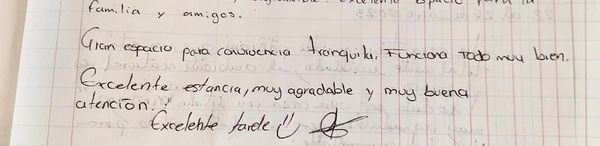 Excelente espacio para la
familia y amigos.
Gran espacio para convivencia tranquila, Funciona todo muy bien.
Excelente estancia, muy agradable y muy buena
atención!!
Excelente tarde